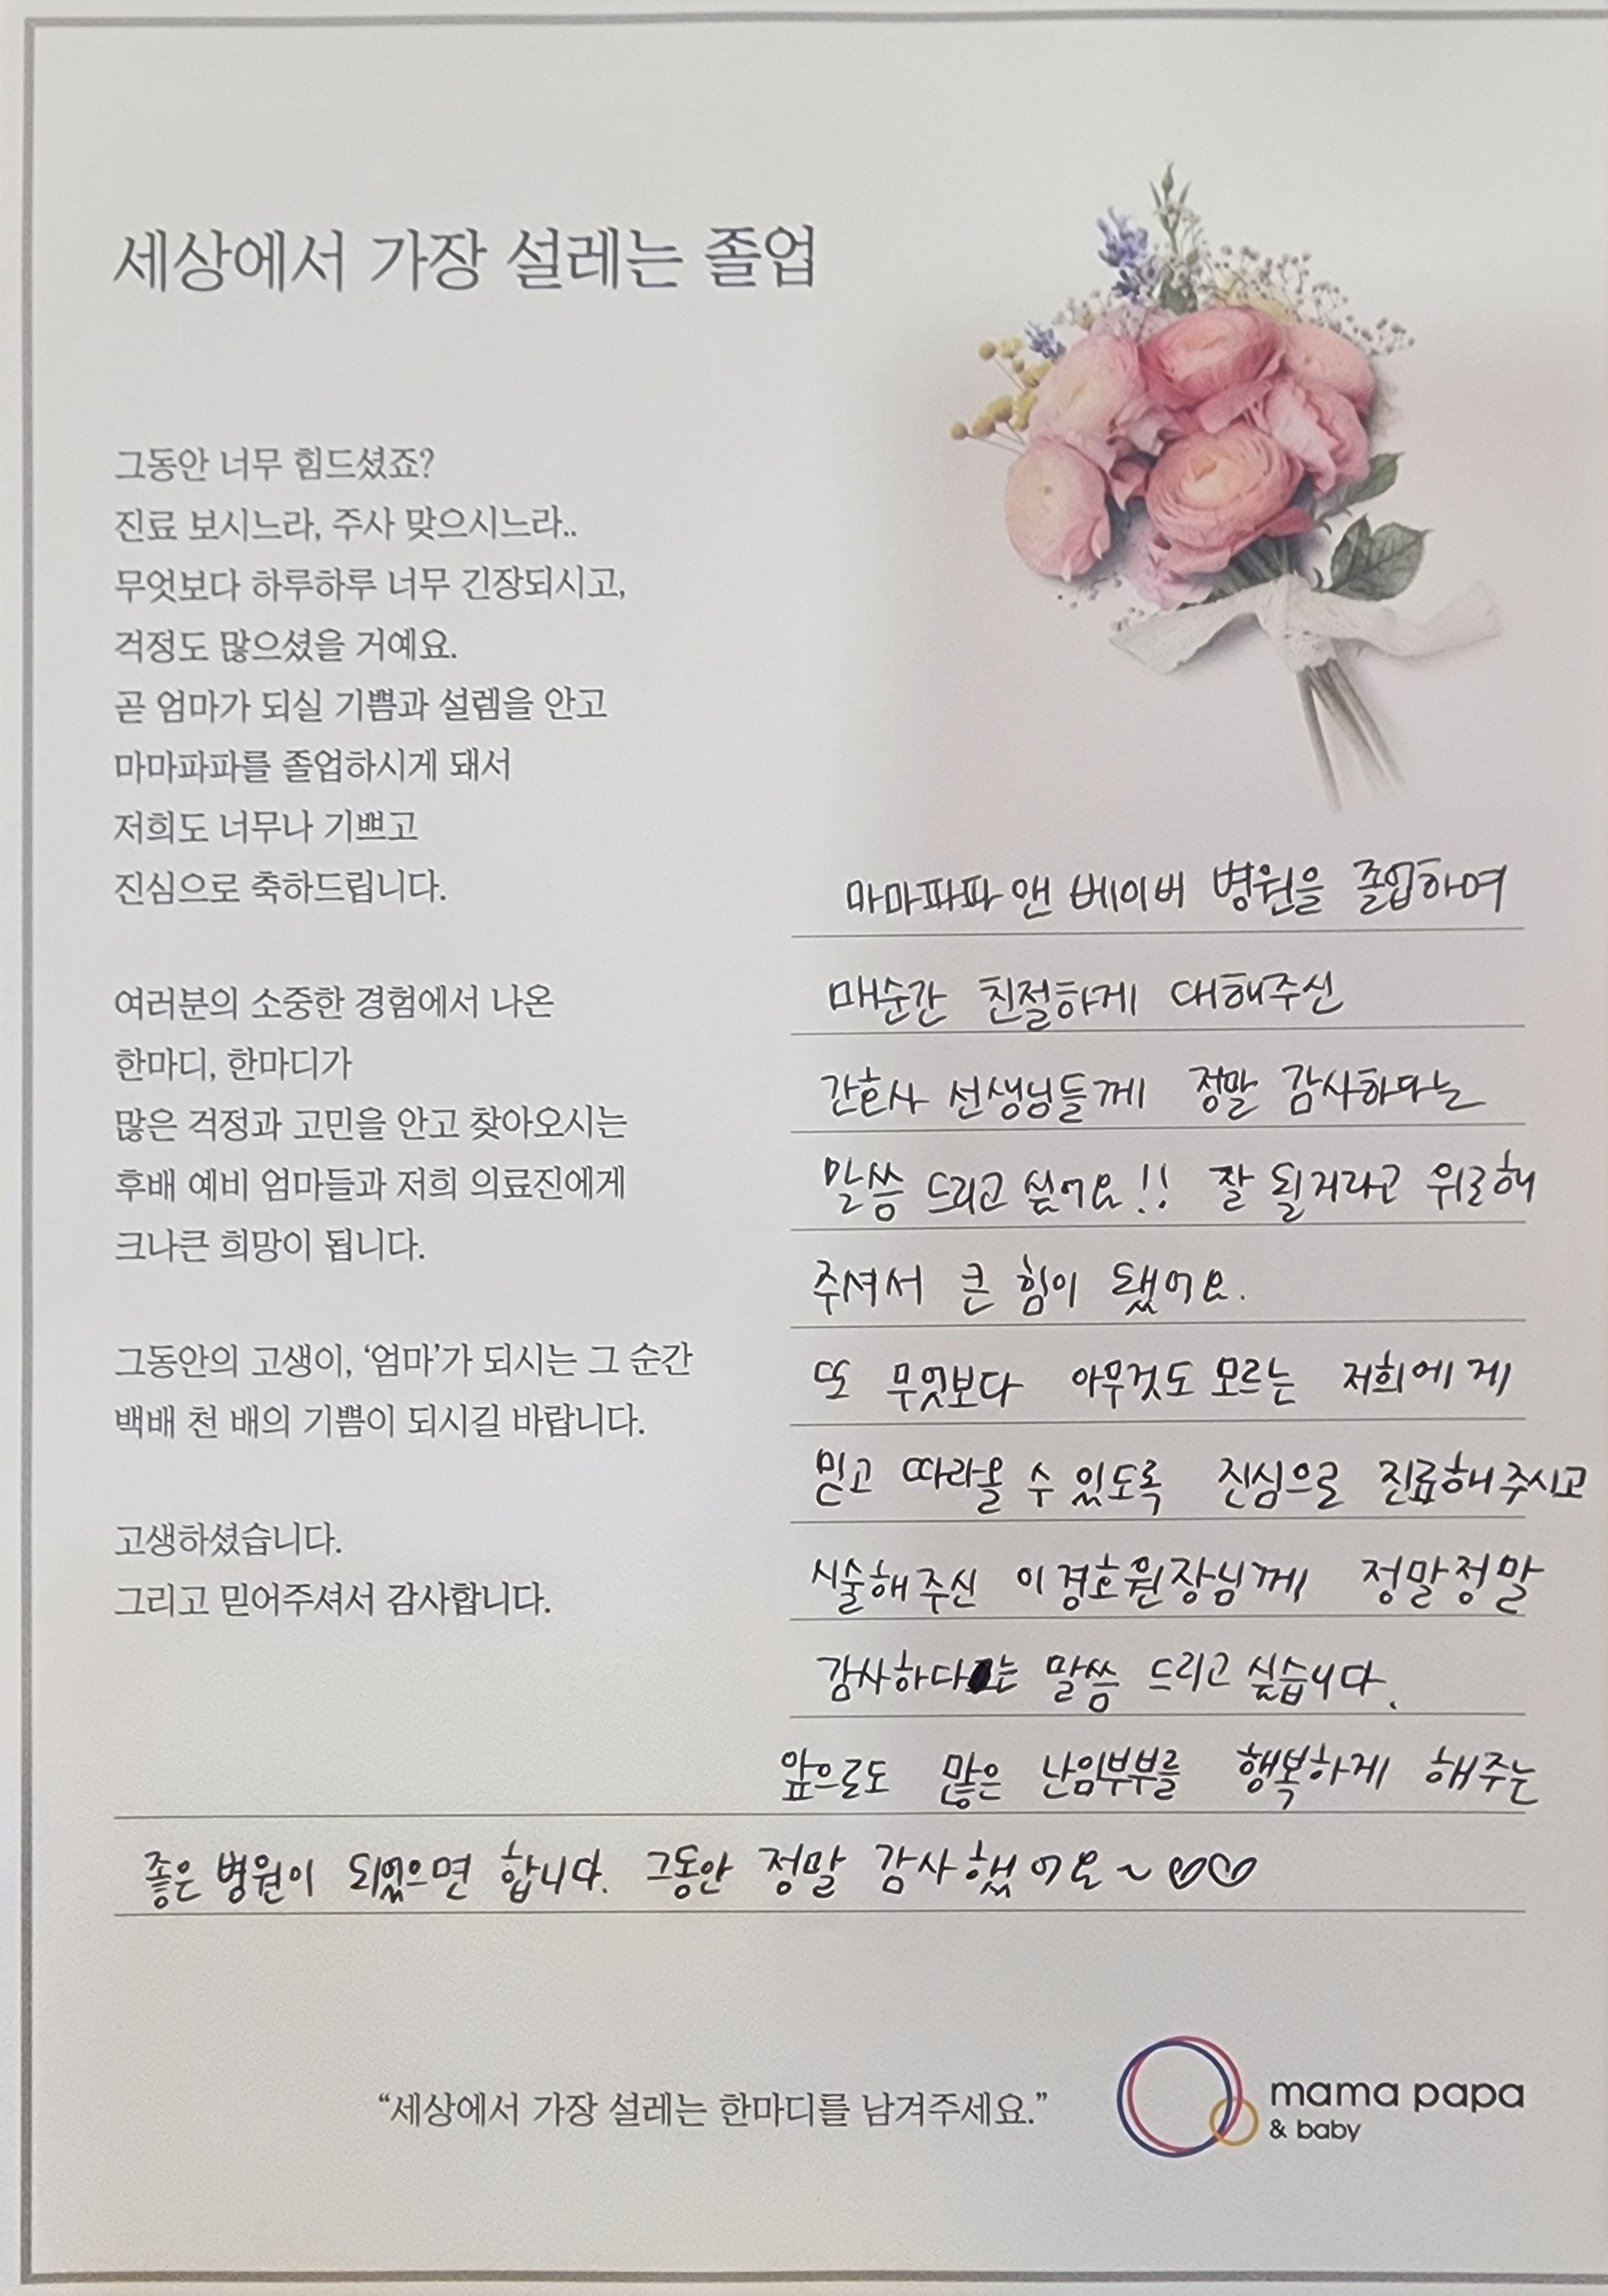 세상에서 가장 설레는 졸업
그동안 너무 힘드셨죠?
진료 보시느라, 주사 맞으시느라..
무엇보다 하루하루 너무 긴장되시고,
걱정도 많으셨을 거예요.
곧 엄마가 되실 기쁨과 설렘을 안고
마마파파를 졸업하시게 돼서
저희도 너무나 기쁘고
진심으로 축하드립니다.
여러분의 소중한 경험에서 나온
한마디, 한마디가
많은 걱정과 고민을 안고 찾아오시는
후배 예비 엄마들과 저희 의료진에게
크나큰 희망이 됩니다.
그동안의 고생이, ‘엄마’가 되시는 그 순간
백배 천 배의 기쁨이 되시길 바랍니다.
고생하셨습니다.
그리고 믿어주셔서 감사합니다.
마마파파 앤 베이버 병원을 졸업하며
매순간 친절하게 대해주신
간호사 선생님들께 정말 감사하다는
말씀 드리고 싶어요!! 잘 될거라고 위로해
주셔서 큰 힘이 됐어요.
또 무엇보다 아무것도 모르는 저희에게
믿고 따라올 수 있도록 진심으로 진료해주시고
시술해주신 이경호원장님께 정말정말
감사하다는 말씀 드리고 싶습니다.
앞으로도 많은 난임부부를 행복하게 해주는
좋은 병원이 되었으면 합니다. 그동안 정말 감사했어요~♡♡
“세상에서 가장 설레는 한마디를 남겨주세요.”
mama papa
& baby